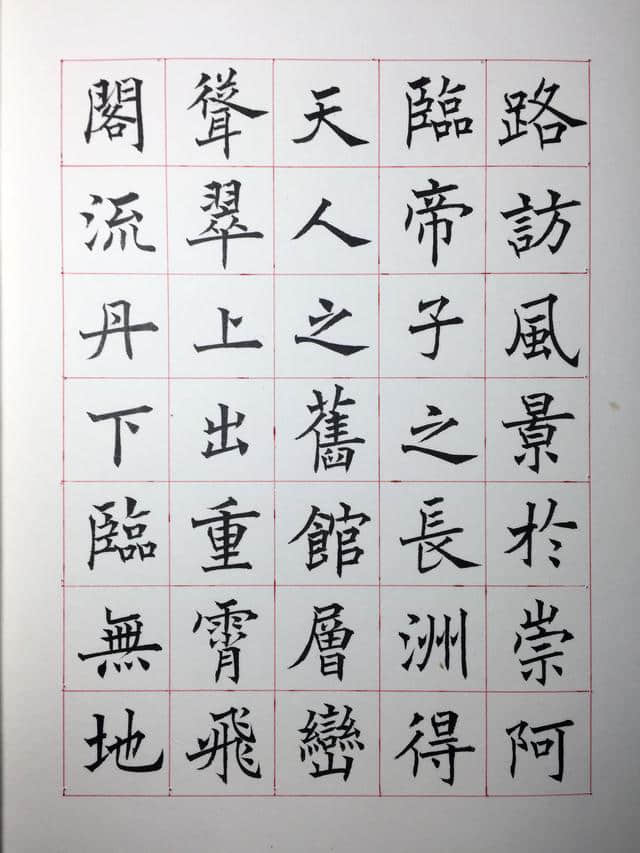 路訪風景於崇阿
臨帝子之長洲得
天人之舊館層巒
聳翠上出重霄飛
閣流丹下臨無地